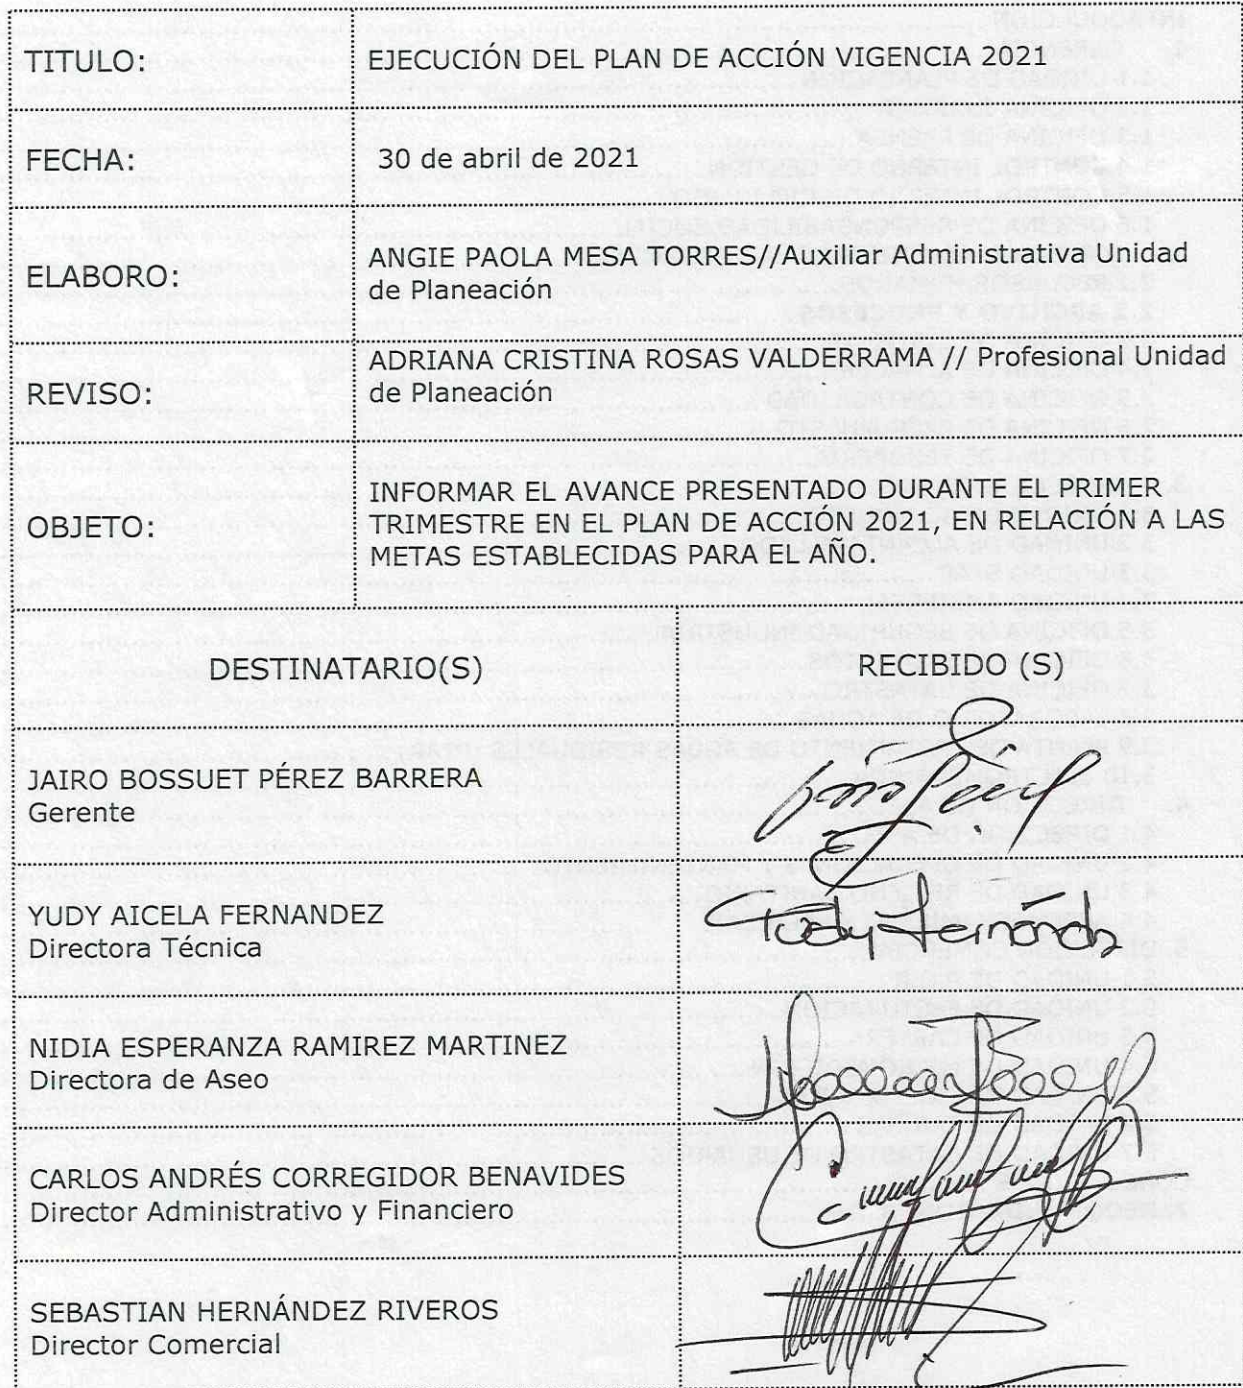 TITULO:
EJECUCIÓN DEL PLAN DE ACCIÓN VIGENCIA 2021
FECHA:
30 de abril de 2021
ELABORO:
ANGIE PAOLA MESA TORRES//Auxiliar Administrativa Unidad
de Planeación
REVISO:
ADRIANA CRISTINA ROSAS VALDERRAMA // Profesional Unidad
de Planeación
OBJETO:
INFORMAR EL AVANCE PRESENTADO DURANTE EL PRIMER
TRIMESTRE EN EL PLAN DE ACCIÓN 2021, EN RELACIÓN A LAS
METAS ESTABLECIDAS PARA EL AÑO.
DESTINATARIO(S)
RECIBIDO (S)
JAIRO BOSSUET PÉREZ BARRERA
Gerente
YUDY AICELA FERNANDEZ
Directora Técnica
Yudy Fernández
NIDIA ESPERANZA RAMIREZ MARTINEZ
Directora de Aseo
CARLOS ANDRÉS CORREGIDOR BENAVIDES
Director Administrativo y Financiero
SEBASTIAN HERNÁNDEZ RIVEROS
Director Comercial